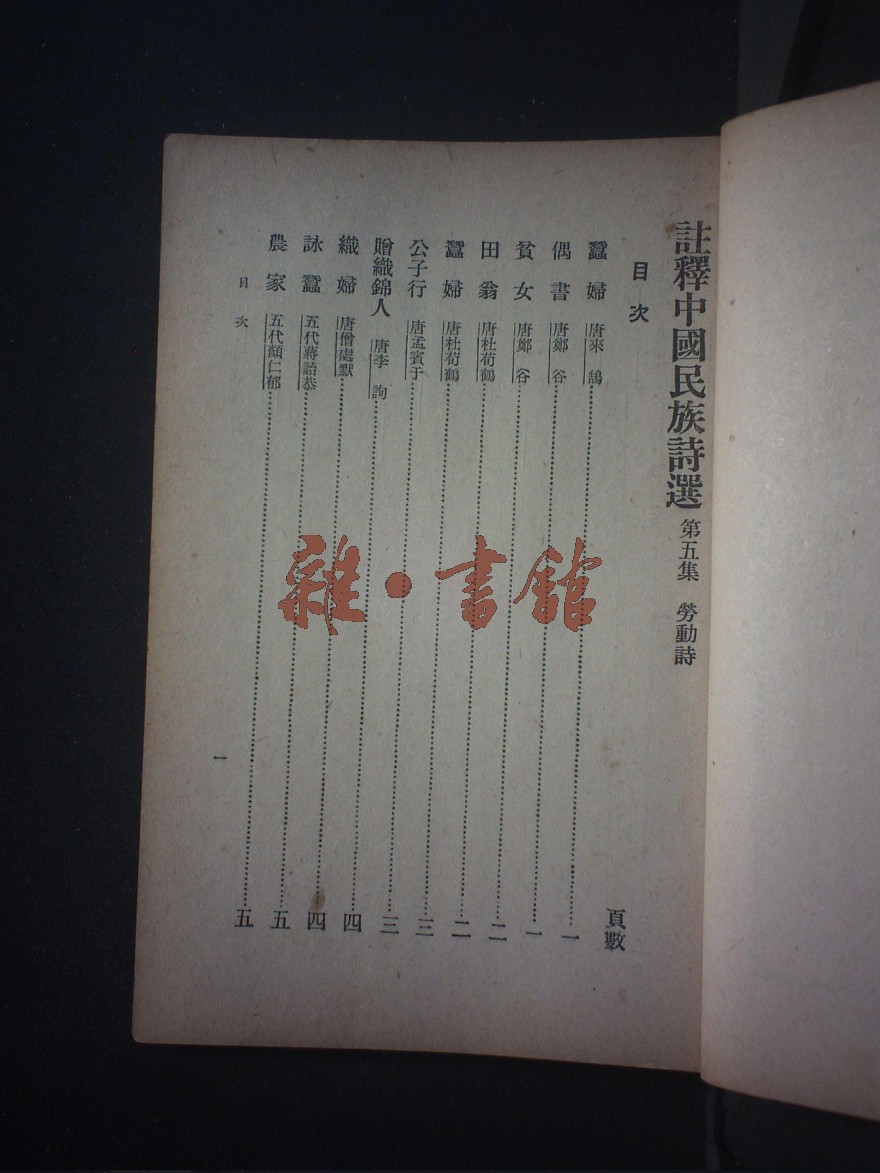 註釋中國民族詩選 第五集 勞動詩
目次
頁數
蠶婦 唐來鵠 一
偶書 唐鄭谷 一
貧女 唐鄭谷 二
田翁 唐杜荀鶴 二
蠶婦 唐杜荀鶴 三
公子行 唐孟賓于 三
贈織錦人 唐李詢 四
織婦 唐僧處默 四
詠蠶 五代蔣詒恭 五
農家 五代顏仁郁 五
目次
一
雜·書館